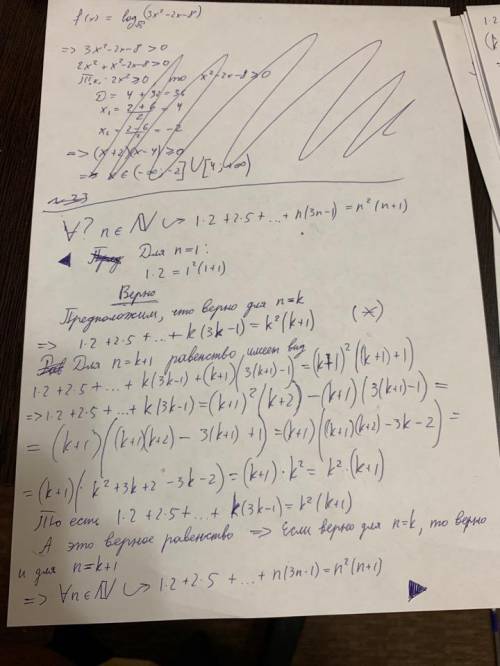 f(x) = log (3x²-2x-8)
=> 3x²-2x-8>0
2x²+x²-2x-8>0
Т.к. 2x²≥0, то x²-2x-8≥0
D = 4+32=36
x₁ = (2+6)/2 = 4
x₂ = (2-6)/2 = -2
=> (x+2)(x-4)≥0
=> x∈(-∞;-2]∪[4;+∞)
∀? n∈ℕ ↪ 1·2+2·5+...+n(3n-1)=n²(n+1)
◀ Для n=1:
1·2=1²(1+1)
Верно
Предположим, что верно для n=k
=> 1·2+2·5+...+k(3k-1)=k²(k+1) (*)
Для n=k+1 равенство имеет вид
1·2+2·5+...+k(3k-1)+(k+1)(3(k+1)-1)=(k+1)²((k+1)+1)
=>1·2+2·5+...+k(3k-1)=(k+1)²(k+2)-(k+1)(3(k+1)-1)=
=(k+1)((k+1)(k+2)-3(k+1)+1)=(k+1)((k+1)(k+2)-3k-2)=
=(k+1)·(k²+3k+2-3k-2)=(k+1)·k²=k²·(k+1)
То есть 1·2+2·5+...+k(3k-1)=k²(k+1)
А это верное равенство => Если верно для n=k, то верно
и для n=k+1
=> ∀n∈ℕ ↪ 1·2+2·5+...+n(3n-1)=n²(n+1) ▶